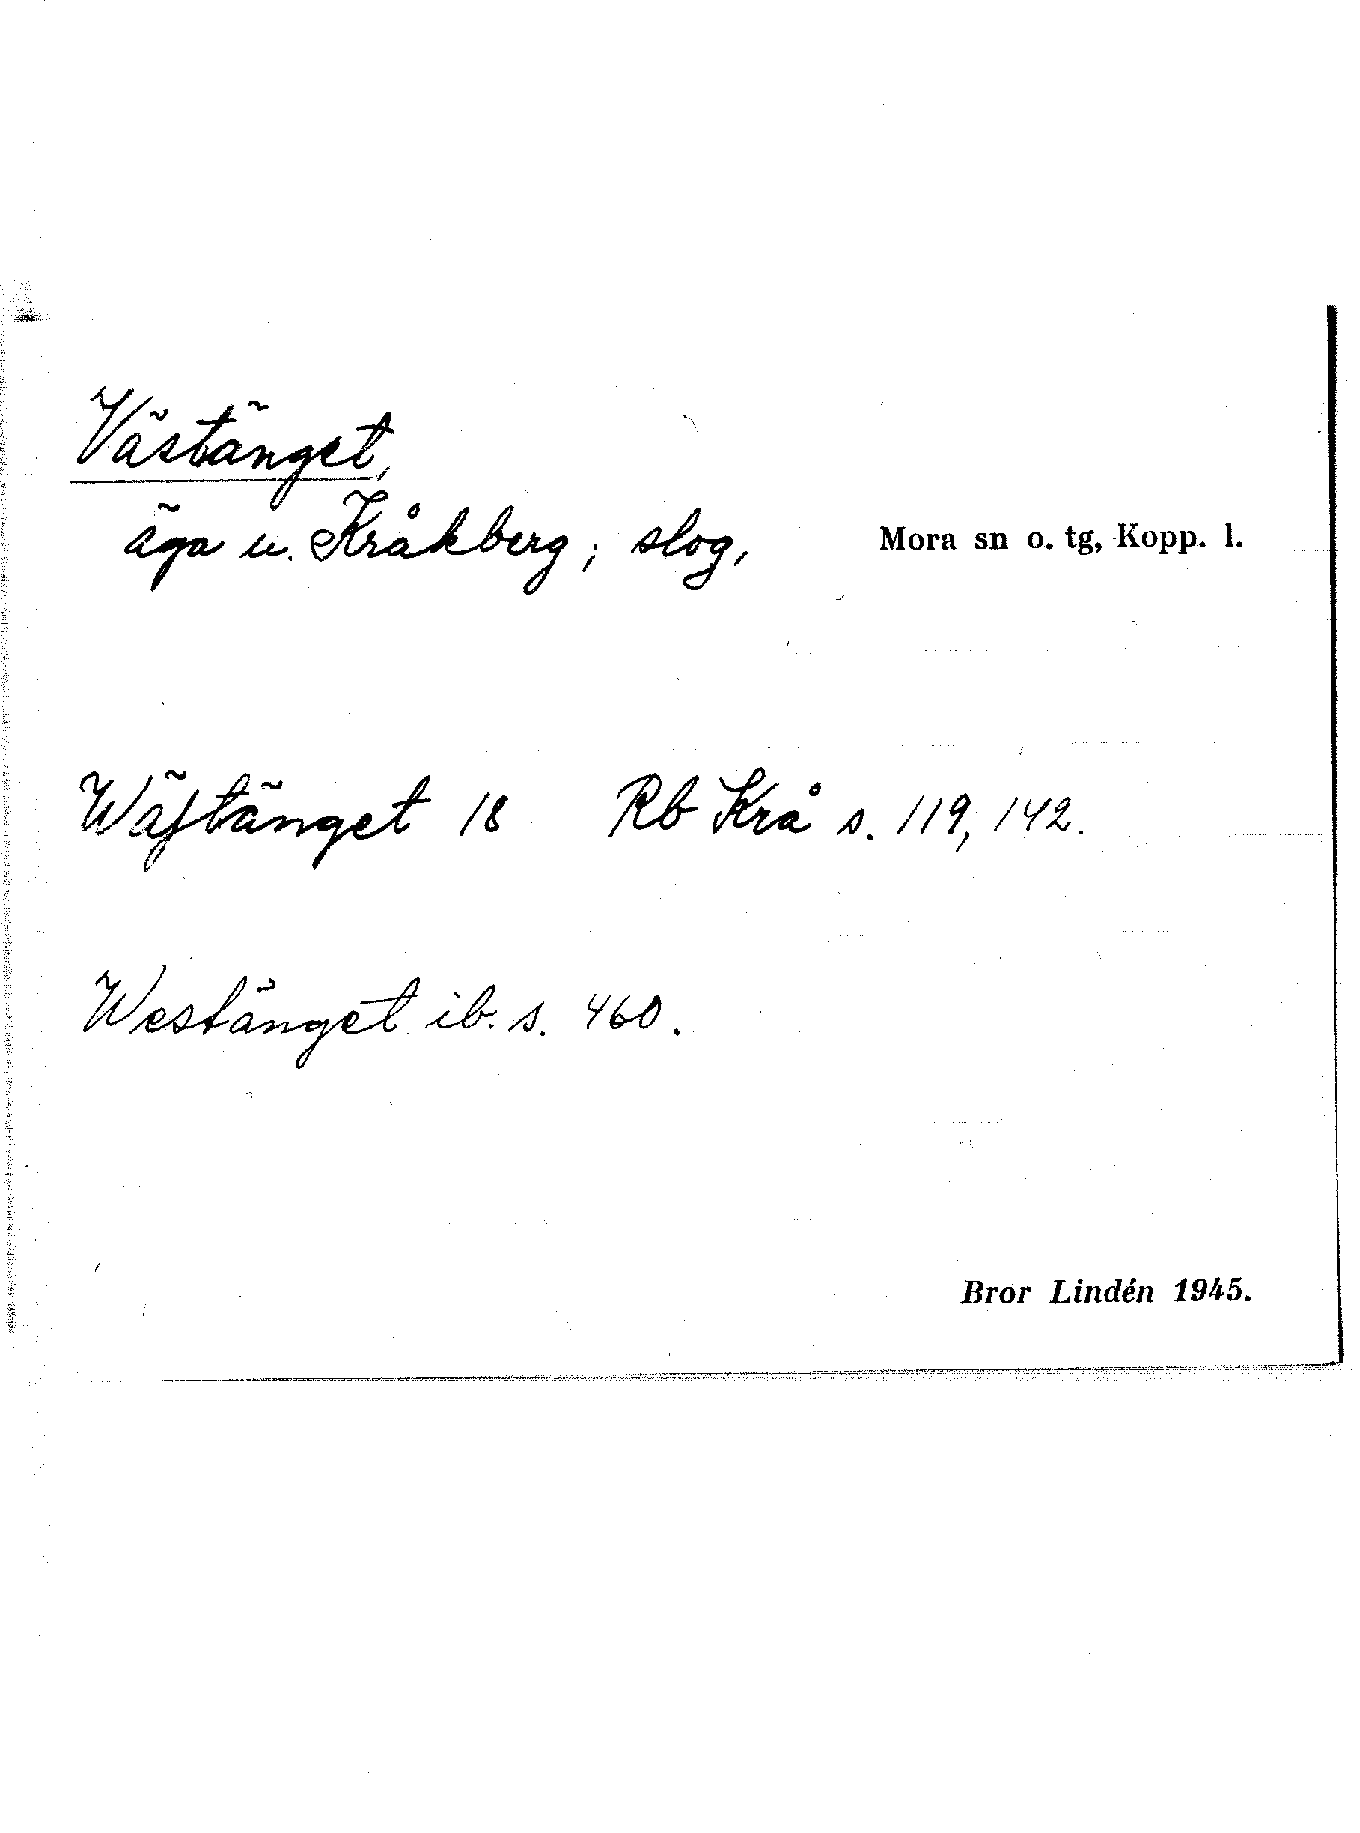 Västänget,
äga u. Kråkberg; slog,
Mora sn o. tg, Kopp. l.
Wäſtänget 18 Rb Krå s. 119, 142.
Westänget ib. s. 460.
Bror Lindén 1945.